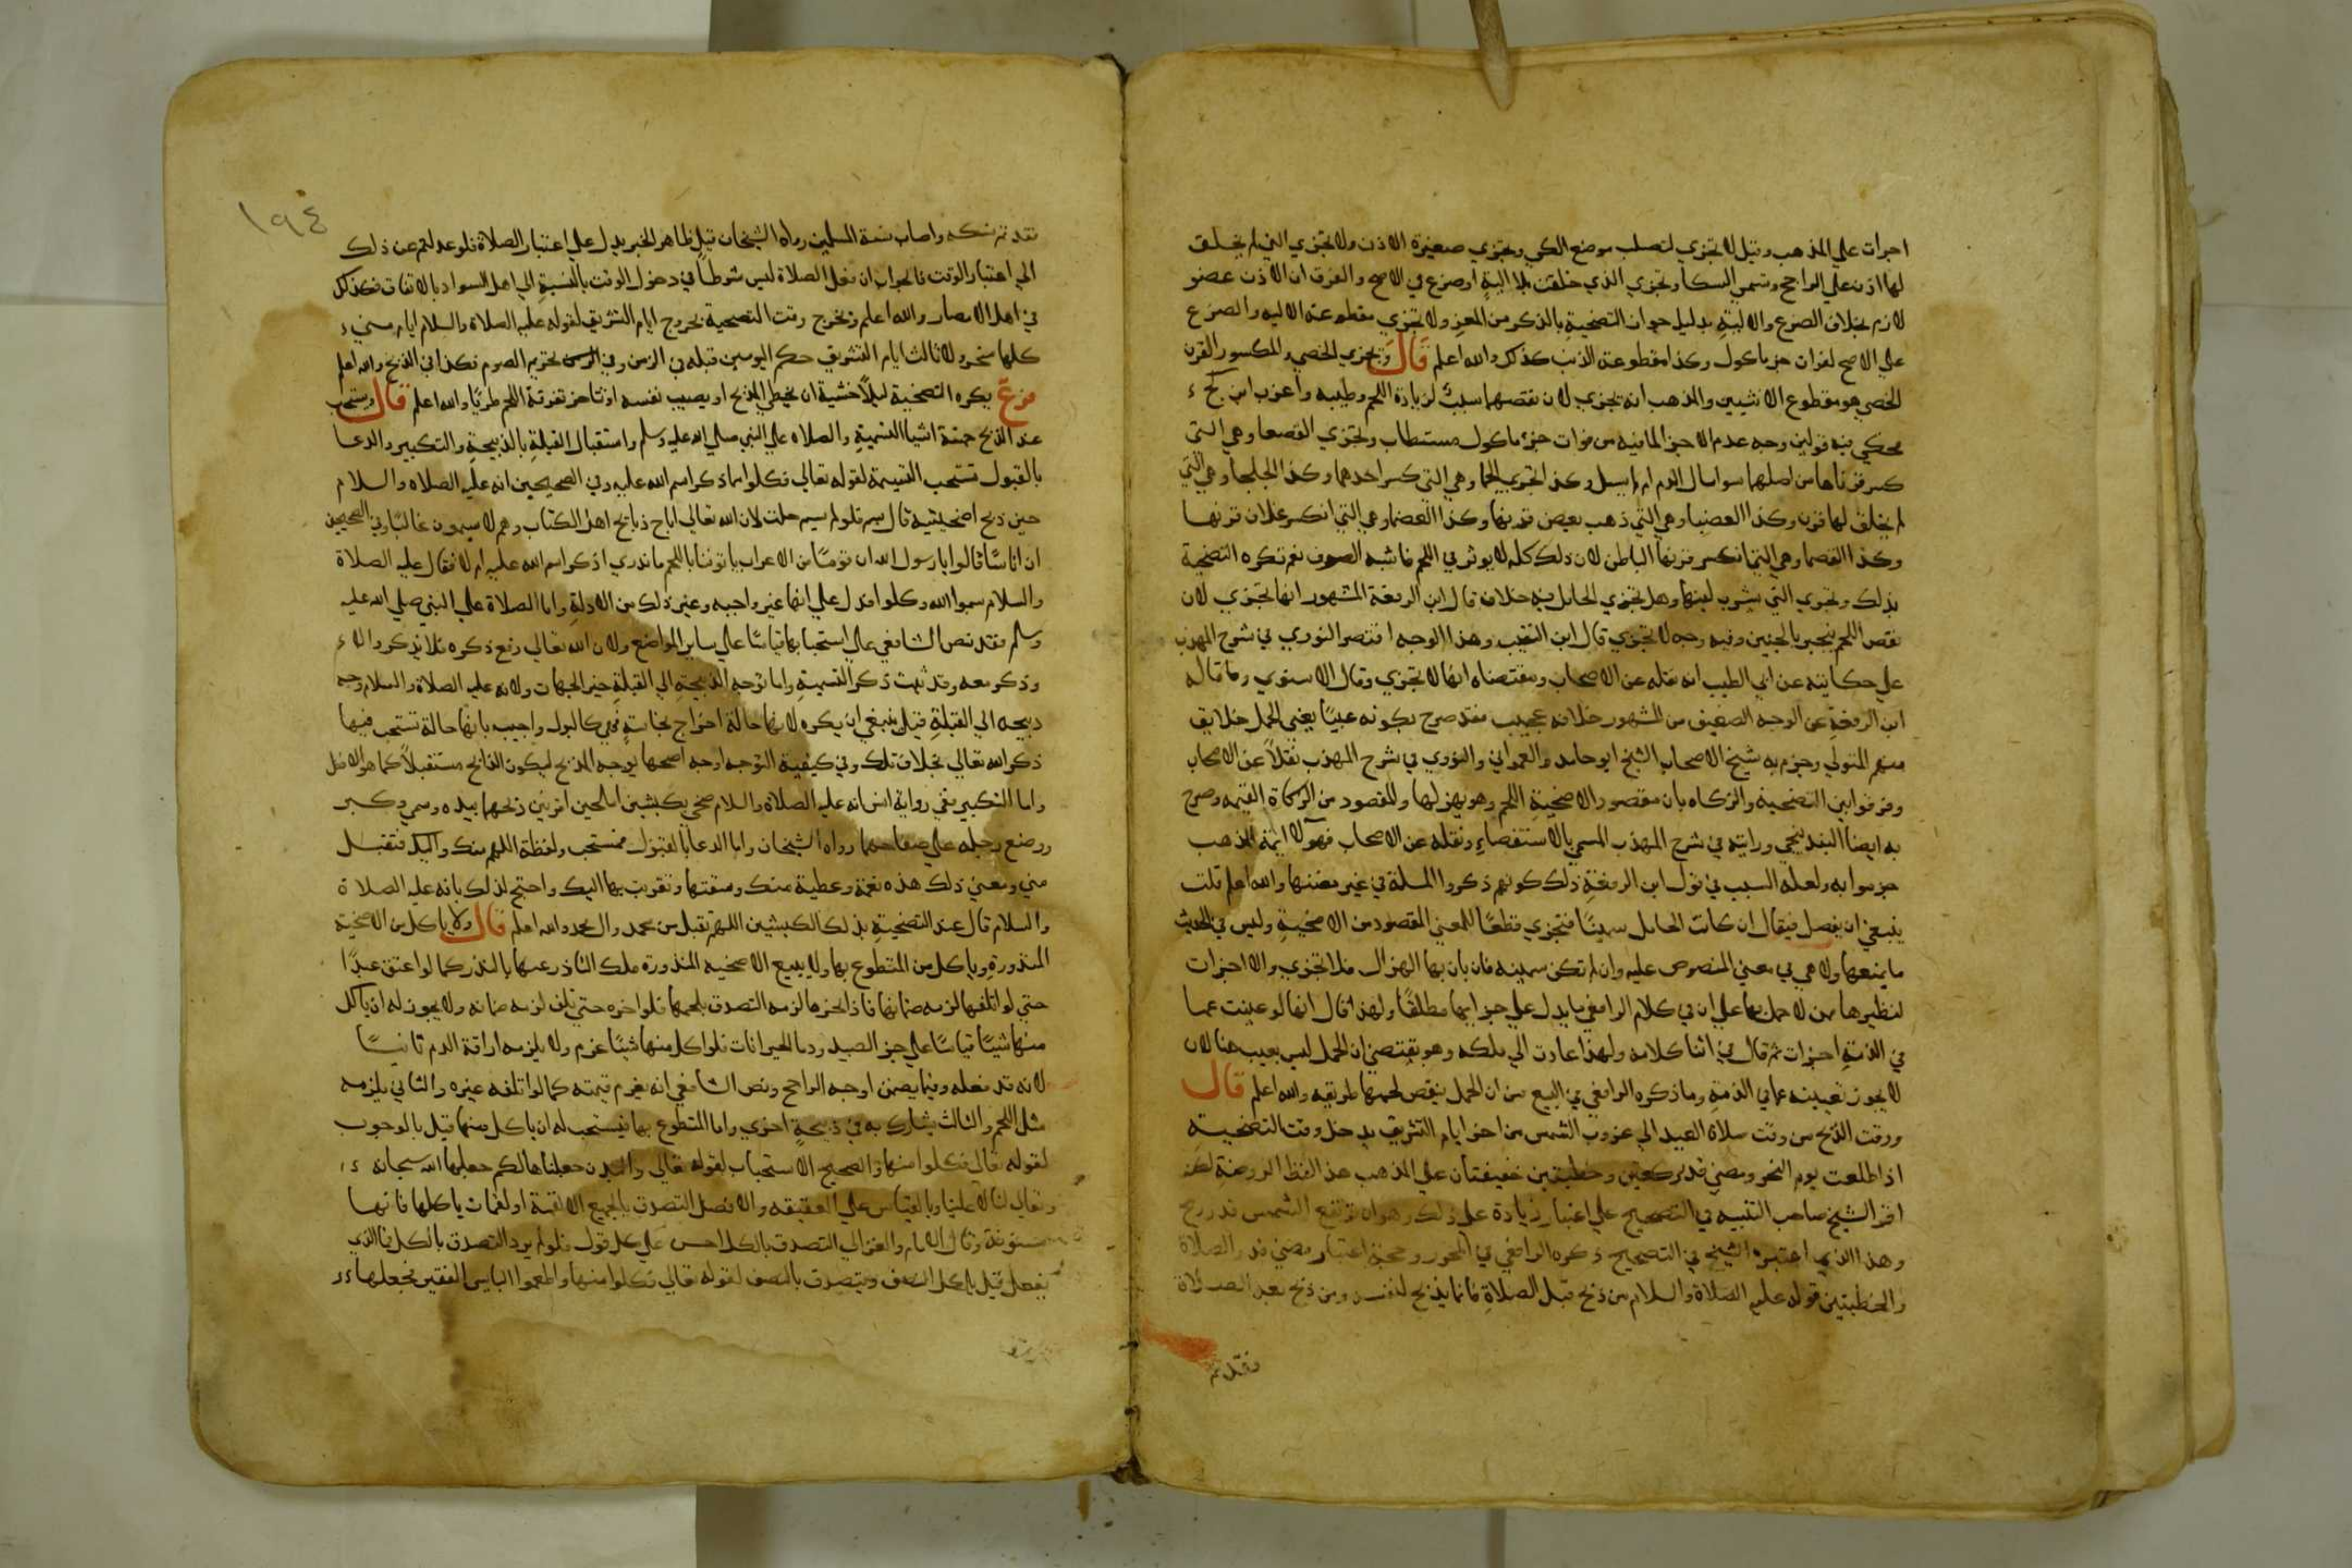 اجزأت علي المذهب وقيل لا تجزي لتصلب موضع الكي وتجزي صغيرة الاذن ولا تجزي التي لم يخلق
لها اذن علي الراجح وتسمي السكا وتجزي الذي خلقت بلا الية او ضرع في الاصح والفرق ان الاذن عضو
لازم بخلاف الضرع والالية بدليل جواز التضحية بالذكر من المعز ولا تجزي مقطوعة الاليه والضرع
علي الاصح لفوات جز ماكول وكذا مقطوعة الذنب كذلك والله اعلم قال وتجزي الخصي والمكسور القرن
الخصي هو مقطوع الانثيين والمذهب انه تجزي لان نقصهما سبب لزيادة اللحم وطيبه واغرب ابن كج
فحكي فيه قولين وجه عدم الاجزا لما فيه من فوات جزء ماكول مستطاب وتجزي القصعا وهي التي
كسر قرناها من اصلهما سوا سال الدم ام لم يسل وكذا تجزي الجما وهي التي كسر احدهما وكذا الجلحا وهي التي
لم يخلق لها قرن وكذا العضبا وهي التي ذهب بعض قرنها وكذا العضما وهي التي انكسر غلاف قرنها
وكذا القصما وهي التي انكسر قرنها الباطن لان ذلك كله لا يوثر في اللحم فاشبه الصوف نعم تكره التضحية
بذلك وتجزي التي يشرب لبنها وهل تجزي الحامل فيه خلاف قال ابن الرفعة المشهور انها تجزي لان
نقص اللحم ينجبر بالجنين وفيه وجه لا تجزي قال ابن النقيب وهذا الوجه اقتصر النووي في شرح المهذب
علي حكايته عن ابي الطيب انه نقله عن الاصحاب ومقتضاه انها لا تجزي وقال الاسنوي وما قاله
ابن الرفعة عن الوجه الضعيف من المشهور خلافه عجيب فقد صرح بكونه عيبا يعني الحمل خلايق
منهم المتولي وجزم به شيخ الاصحاب الشيخ ابو حامد والعمراني والنووي في شرح المهذب نقلا عن الاصحاب
وفرقوا بين التضحية والزكاه بان مقصود الاضحية اللحم وهو يهزلها والمقصود من الزكاة القيمه وصرح
به ايضا البندنيجي ورايته في شرح المهذب المسمي بالاستقصاء ونقله عن الاصحاب فهولا ايمة المذهب
جزموا به ولعله السبب في قول ابن الرفعة ذلك كونهم ذكروا المسلة في غير مضنتها والله اعلم قلت
ينبغي ان يفصل فيقال ان كانت الحامل سمينا فتجزي قطعا للمعني المقصود من الاضحية وليس في الحديث
ما يمنعها ولا هي في معني المنصوص عليه وان لم تكن سمينه فان بان بها الهزال فلا تجزي والا اجزات
لنظيرها من لا حمل بها علي ان في كلام الرافعي ما يدل علي جز ايها مطلقا ولهذا قال انها لو عينت عما
في الذمة اجزات ثم قال في اثنا كلامه ولهذا عادت الي ملكه وهو يقتضي ان الحمل ليس بعيب هنا لان
لا يجوز تعيينه عما في الذمة وما ذكره الرافعي في البيع من ان الحمل ينقص لحمها طريقه والله اعلم قال
ووقت الذبح من وقت صلاة العيد الي غروب الشمس من اخر ايام التشريق يدخل وقت التضحية
اذا طلعت يوم النحر ومضي قدر ركعتين وخطبتين خفيفتان علي المذهب هذا لفظ الروضة لكن
اقر الشيخ صاحب التنبيه في التصحيح علي اعتبار زيادة علي ذلك وهو ان ترتفع الشمس قدر رمح
وهذا الذي اعتبره الشيخ في التصحيح ذكره الرافعي في المحرر وحجة اعتبار مضي قدر الصلاة
والخطبتين قوله عليه الصلاة والسلام من ذبح قبل الصلاة فانما يذبح لنفسه ومن ذبح بعد الصلاة
فقد تم
١٩٤
فقد تم نسكه واصاب سنة المسلمين رواه الشيخان قيل ظاهر الخبر يدل علي اعتبار الصلاة فلو عدلتم عن ذلك
الي اعتبار الوقت فالجواب ان فعل الصلاة ليس شرطا في دخول الوقت بالنسبة الي اهل السواد بالاتفاق فكذلك
في اهل الامصار والله اعلم ويخرج وقت التضحية بخروج ايام التشريق لقوله عليه الصلاة والسلام ايام مني
كلها منحر ولان ثالث ايام التشريق حكم اليومين قبله في الرمي وفي تحريم الصوم فكذا في الذبح والله اعلم
فرع يكره التضحية ليلا خشية ان يخطي المذبح او يصيب نفسه او تتاخر تفرقة اللحم طريا والله اعلم قال ويستحب
عند الذبح خمسة اشيا التسمية والصلاه علي النبي صلي الله عليه وسلم واستقبال القبلة بالذبيحة والتكبير والدعا
بالقبول تستحب التسيمة لقوله تعالي فكلوا مما ذكر اسم الله عليه وفي الصحيحين انه عليه الصلاه والسلام
حين ذبح اضحيتيه قال بسم فلو لم يسم حلت لان الله تعالي اباح ذبايح اهل الكتاب وهم لا يسمون غالبا وفي الصحيحين
ان اناسا قالوا يا رسول الله ان قوما من الاعراب ياتوننا باللحم ما ندري اذكر اسم الله عليه ام لا فقال عليه الصلاة
والسلام سموا الله وكلوا فدل علي انها غير واجبه وغير ذلك من الادلة واما الصلاة علي النبي صلي الله عليه
وسلم فقد نص الشافعي علي استحبابها قياسا علي ساير المواضع ولان الله تعالي رفع ذكره فلا يذكر الا
وذكر معه وقد ثبت ذكر التسمية واما توجه الذبيحة الي القبلة خير الجهات ولانه عليه الصلاة والسلام وجه
ذبيحه الي القبلة قيل ينبغي ان يكره لانها حالة اخراج نجاسة فهي كالبول واجيب بانها حالة تستحب فيها
ذكر الله تعالي بخلاف تلك وفي كيفية التوجه اوجه اصحها يوجه المذبح ليكون الذابح مستقبلا كما هو الافضل
واما التكبير ففي رواية انس انه عليه الصلاة والسلام ضحي بكبشين املحين اقرنين ذبحهما بيده وسمي وكبر
ووضع رجله علي صفاحهما رواه الشيخان واما الدعا بالقبول فمستحب ولفظة اللهم منك واليك فتقبل
مني ومعني ذلك هذه نعمة وعطية منك وسقتها وتقربت بها اليك واحتج لذلك بانه عليه الصلاة
والسلام قال عند التضحية بذلك الكبشين اللهم تقبل من محمد وال محمد والله اعلم قال ولا ياكل من الاضحية
المنذورة وياكل من المتطوع بها ولا يبيع الاضحيه المنذورة ملك الناذر عنها بالنذر كما لو اعتق عبدا
حتي لو اتلفها لزمه ضمانها فاذا نحرها لزمه التصدق بلحمها فلو اخره حتي تلف لزمه ضمانه ولا يجوز له ان ياكل
منها شيا قياسا علي جز الصيد ودما الحيوانات فلو اكل منها شيا غرم ولا يلزمه اراقة الدم ثانيا
لانه قد فعله وفيما يضمن اوجه الراجح ونص الشافعي انه يغرم قيمته كما لو اتلفه غيره والثاني يلزمه
مثل اللحم والثالث يشارك به في ذبيحة اخري واما المتطوع بها فيستحب له ان ياكل منها قيل بالوجوب
لقوله تعالي فكلوا منها والصحيح الاستحباب لقوله تعالي والبدن جعلناها لكم جعلها الله سبحانه
وتعالي لنا لا علينا وبالقياس علي العقيقه والافضل التصدق بالجميع الا لقمة او لقمات ياكلها فانها
مسنونة وقال الامام والغزالي التصدق بالكل احسن علي كل قول فلو لم يرد التصدق بالكل فما الذي
يفعل قيل ياكل النصف ويتصدق بالنصف لقوله تعالي فكلوا منها واطعموا البايس الفقير فجعلها